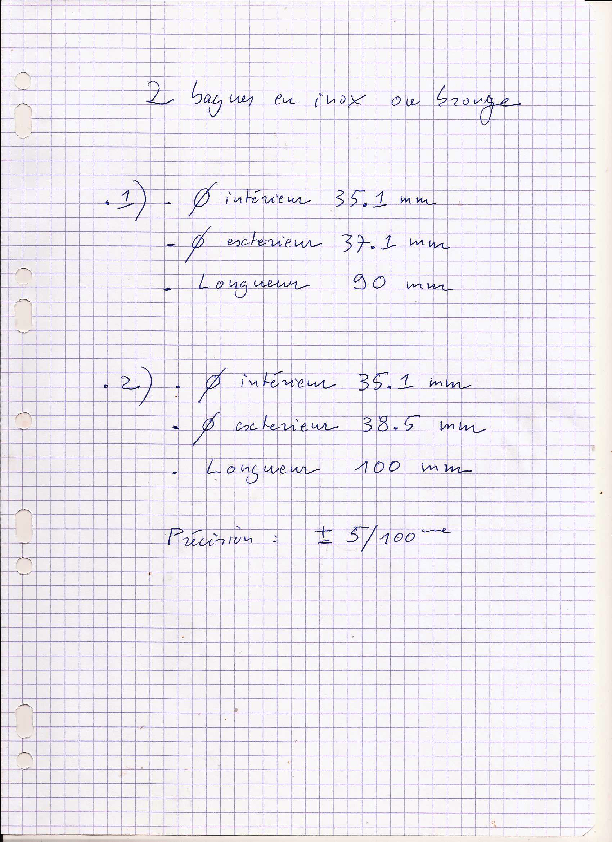 2 bagues en inox ou bronze
.1) - Ø intérieur 35.1 mm
- Ø exterieur 37.1 mm
- Longueur 90 mm
.2) - Ø intérieur 35.1 mm
- Ø exterieur 38.5 mm
- Longueur 100 mm
Précision : ± 5/100 ème